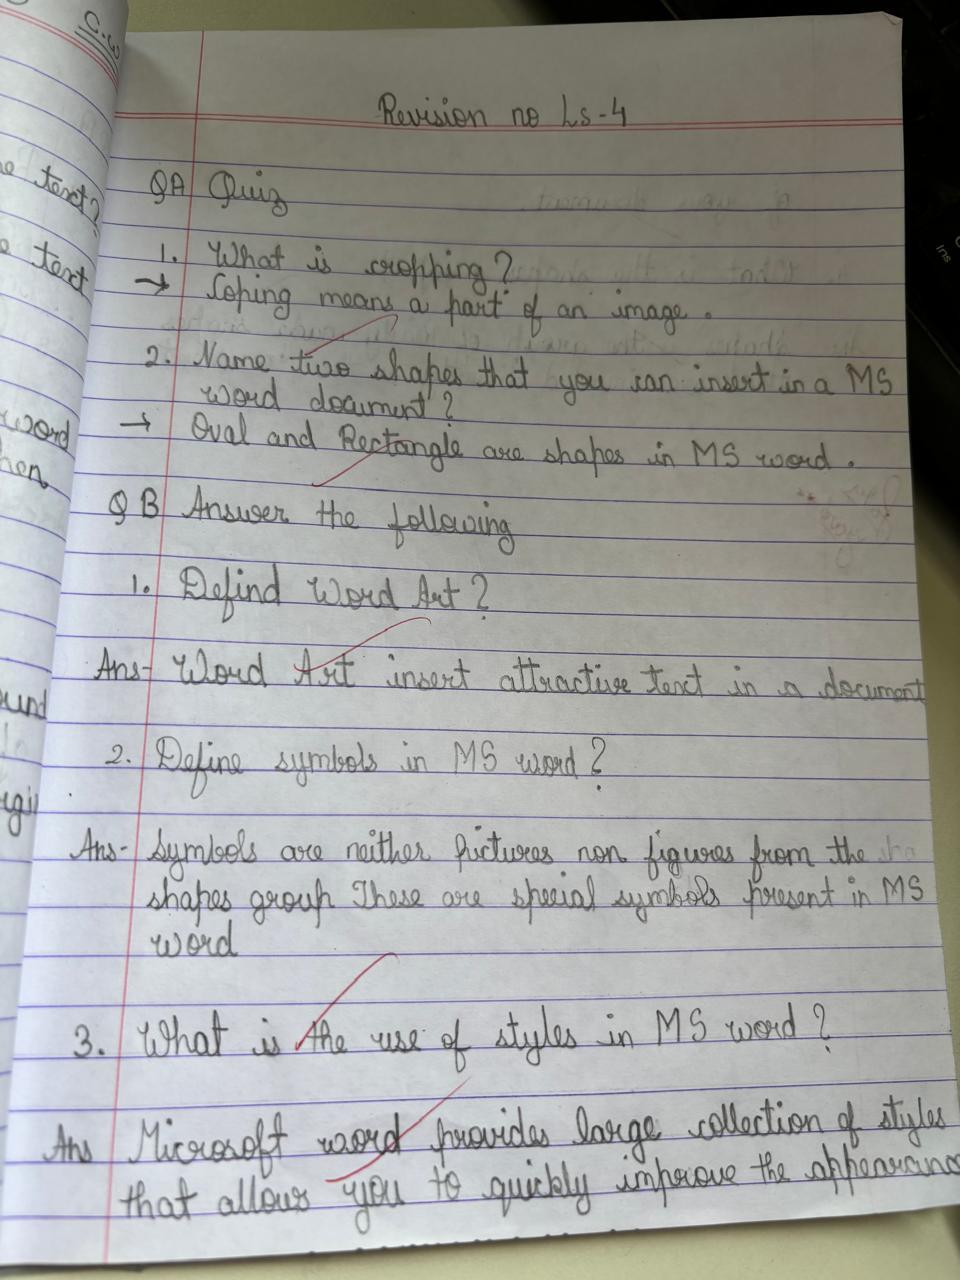 C.W
Revision no Ls-4
QA Quiz
1. What is cropping?
→ Coping means a part of an image.
2. Name two shapes that you can insert in a MS
word document?
→ Oval and Rectangle are shapes in MS word.
Q B Answer the following
1. Defind Word Art?
Ans- Word Art insert attractive text in a document
2. Define symbols in MS word?
Ans- Symbols are neither pictures non figures from the
shapes group These are special symbols present in MS
word
3. What is the use of styles in MS word?
Ans Microsoft word provides large collection of styles
that allows you to quickly improve the appearanc
text?
text
word
Ins